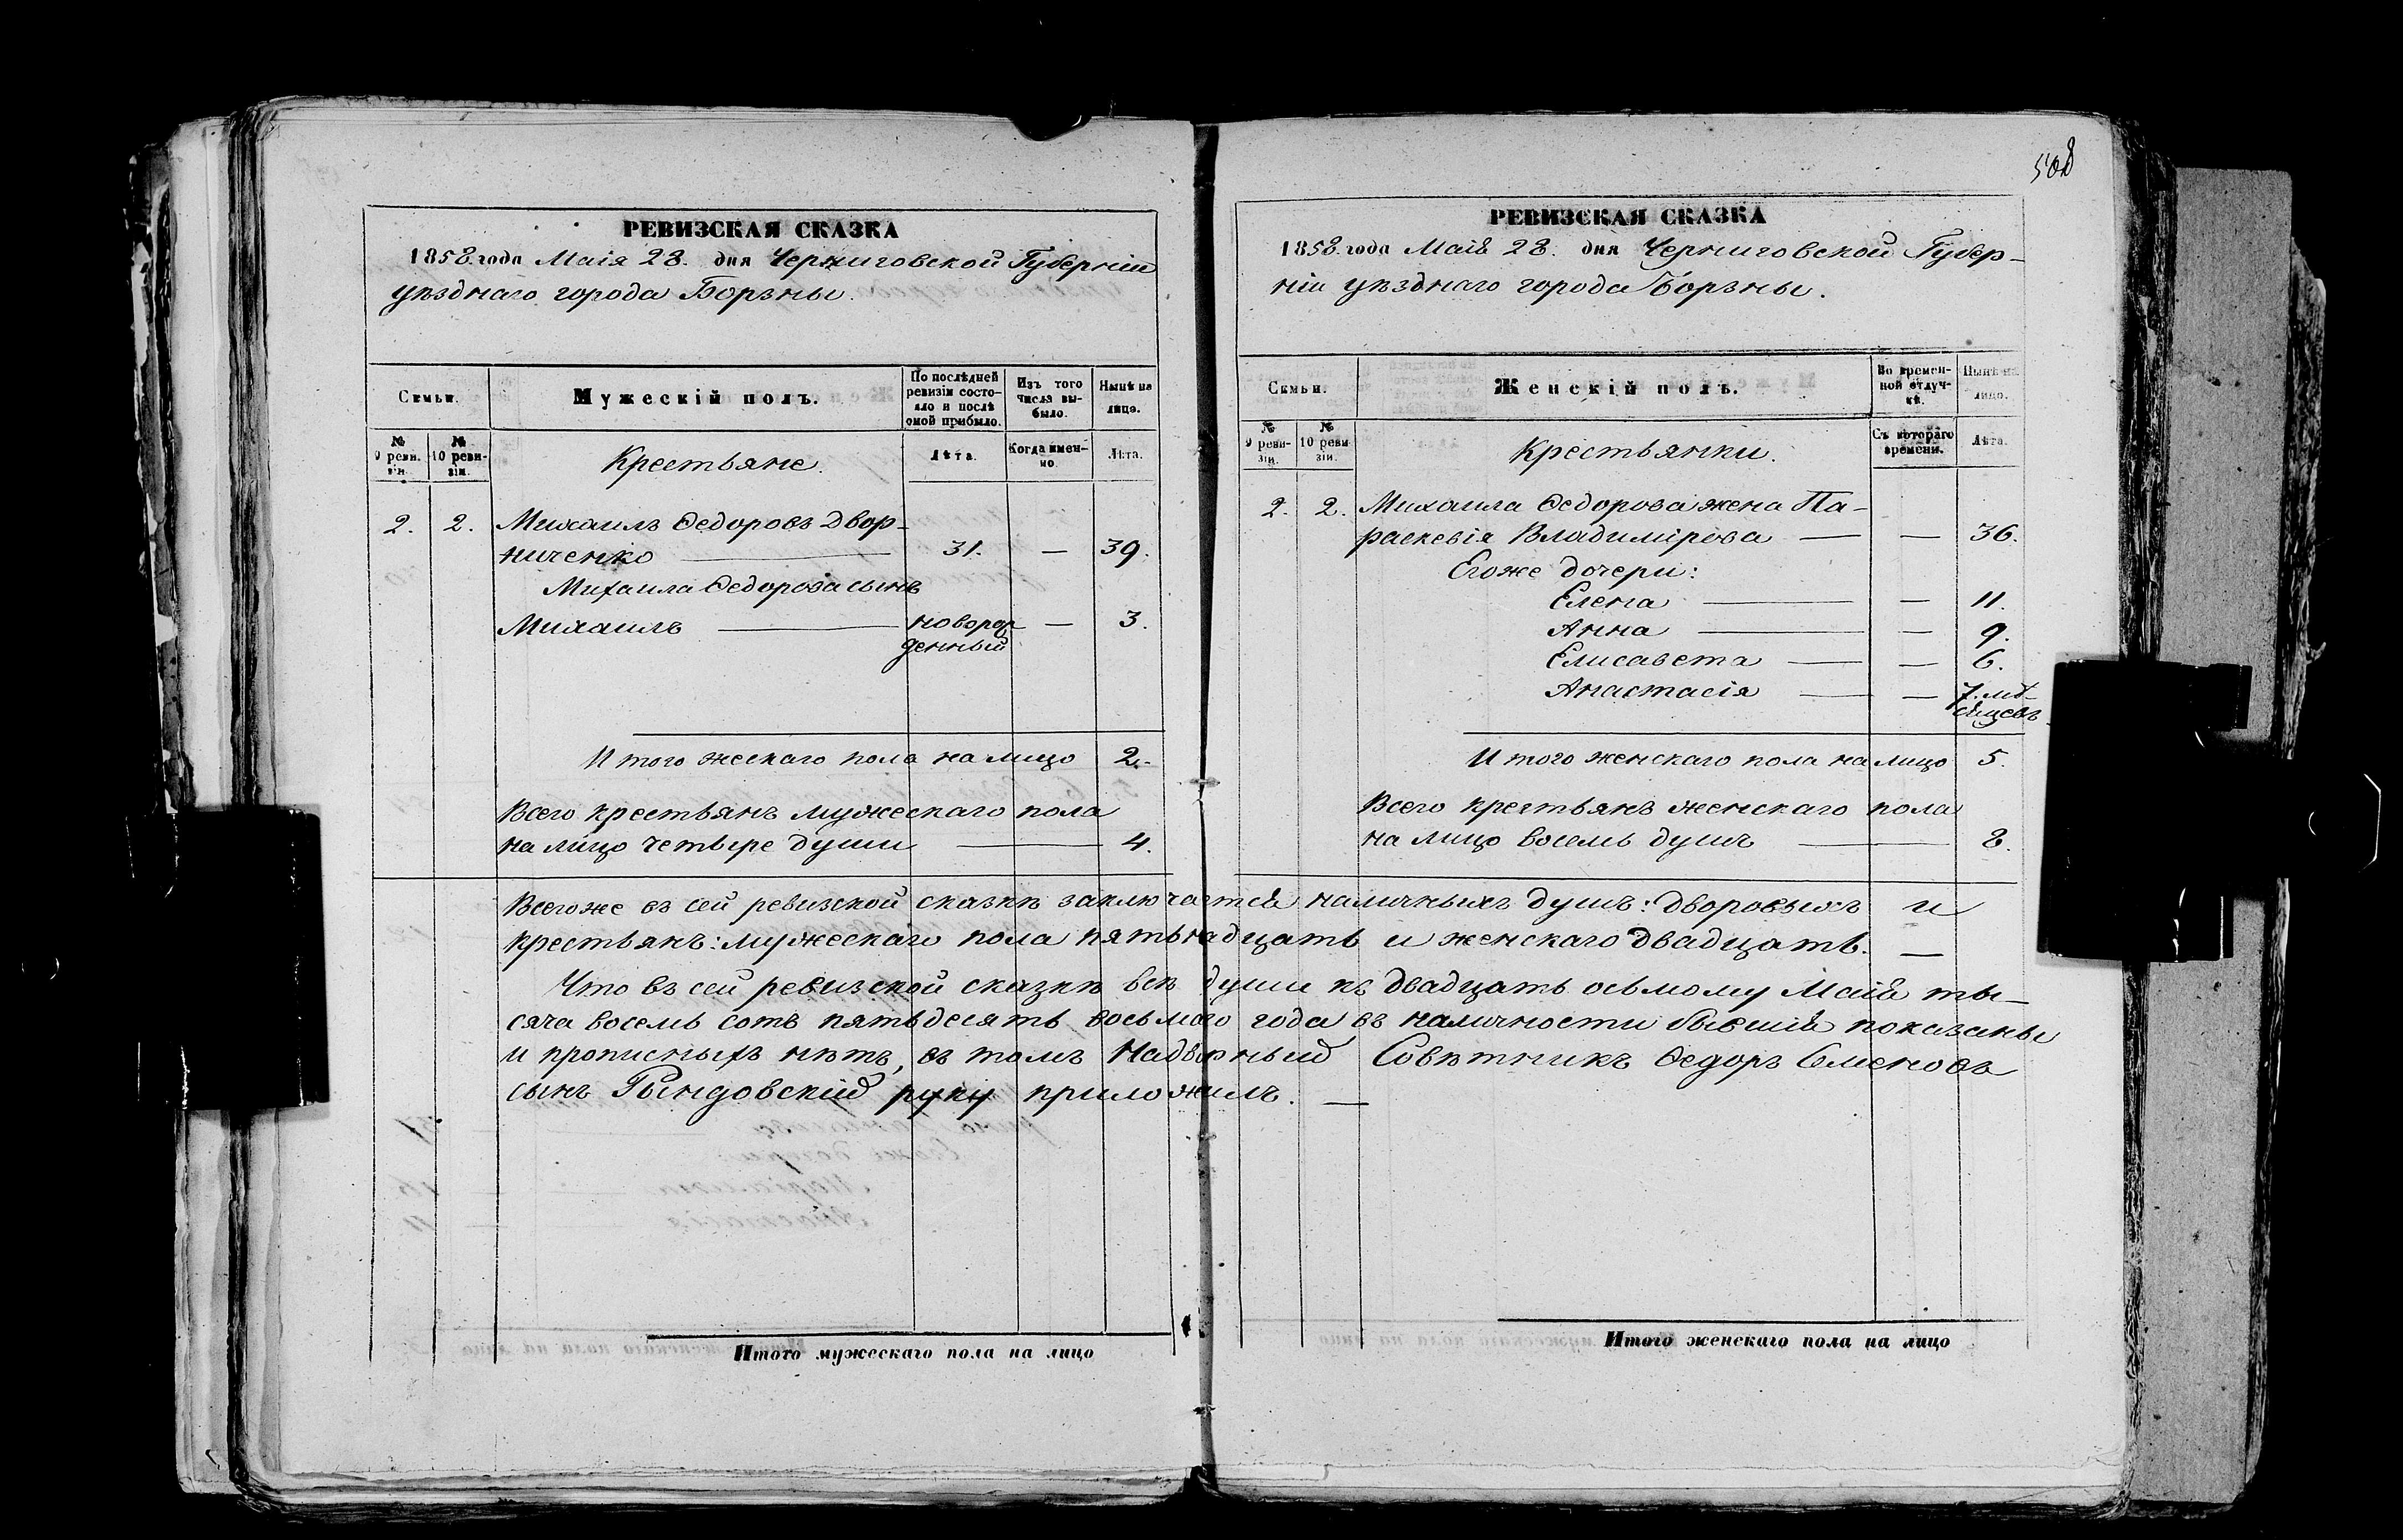 508
РЕВИЗСКАЯ СКАЗКА
1858 года Маія 28. дня Черниговской Губерніи
уѣзднаго города Борзны.
Семьи.
Мужескій полъ.
По послѣдней
ревизіи состо-
яло и послѣ
оной прибыло.
Изъ того
числа вы-
было.
Нынѣ на
лицо.
№
9 реви-
зіи.
№
10 реви-
зіи.
Крестьяне.
Лѣта.
Когда имен-
но.
Лѣта.
2. 2. Михаилъ Ѳедоровъ Двор-
ниченко — 31. — 39.
Михаила Ѳедорова сынъ
Михаилъ — новорож — 3.
денный
Итого жескаго пола на лицо 2.
Всего крестьянъ мужескаго пола
на лицо четыре души — 4.
РЕВИЗСКАЯ СКАЗКА
1858. года Маія 28. дня Черниговской Губер-
ніи уѣзднаго города Борзны.
Семьи.
Женскій полъ.
Во времен-
ной отлуч-
кѣ.
Нынѣ на
лицо.
№
9 реви-
зіи.
№
10 реви-
зіи.
Крестьянки.
Съ котораго
времени.
Лѣта.
2. 2. Михаила Ѳедорова жена Па-
раскевія Владимірова — — 36.
Егоже дочери:
Елена — — 11.
Анна — — 9.
Елисавета — — 6.
Анастасія — — 7. мѣ-
сяцевъ
Итого женскаго пола на лицо 5.
Всего крестьянъ женскаго пола
на лицо восемь душъ — 8.
Всегоже въ сей ревизской сказкѣ заключается наличныхъ душъ: дворовыхъ и
крестьянъ: мужескаго пола пятьнадцать и женскаго двадцать. —
Что въ сей ревизской сказкѣ всѣ души къ двадцать осьмому Маія ты-
сяча восемь сотъ пятьдесятъ восьмаго года въ наличности бывшія показаны
и прописныхъ нѣтъ, въ томъ Надворный Совѣтникъ Ѳедоръ Семеновъ
сынъ Рындовскій руку приложилъ. —
Итого мужескаго пола на лицо
Итого женскаго пола на лицо